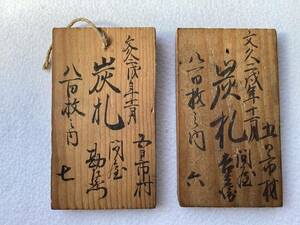 文久二戌年十一月
炭札
五日市村
問屋
勘兵衛
八百枚之内
七
文久二戌年十一月
炭札
五日市村
問屋
八百枚之内
六